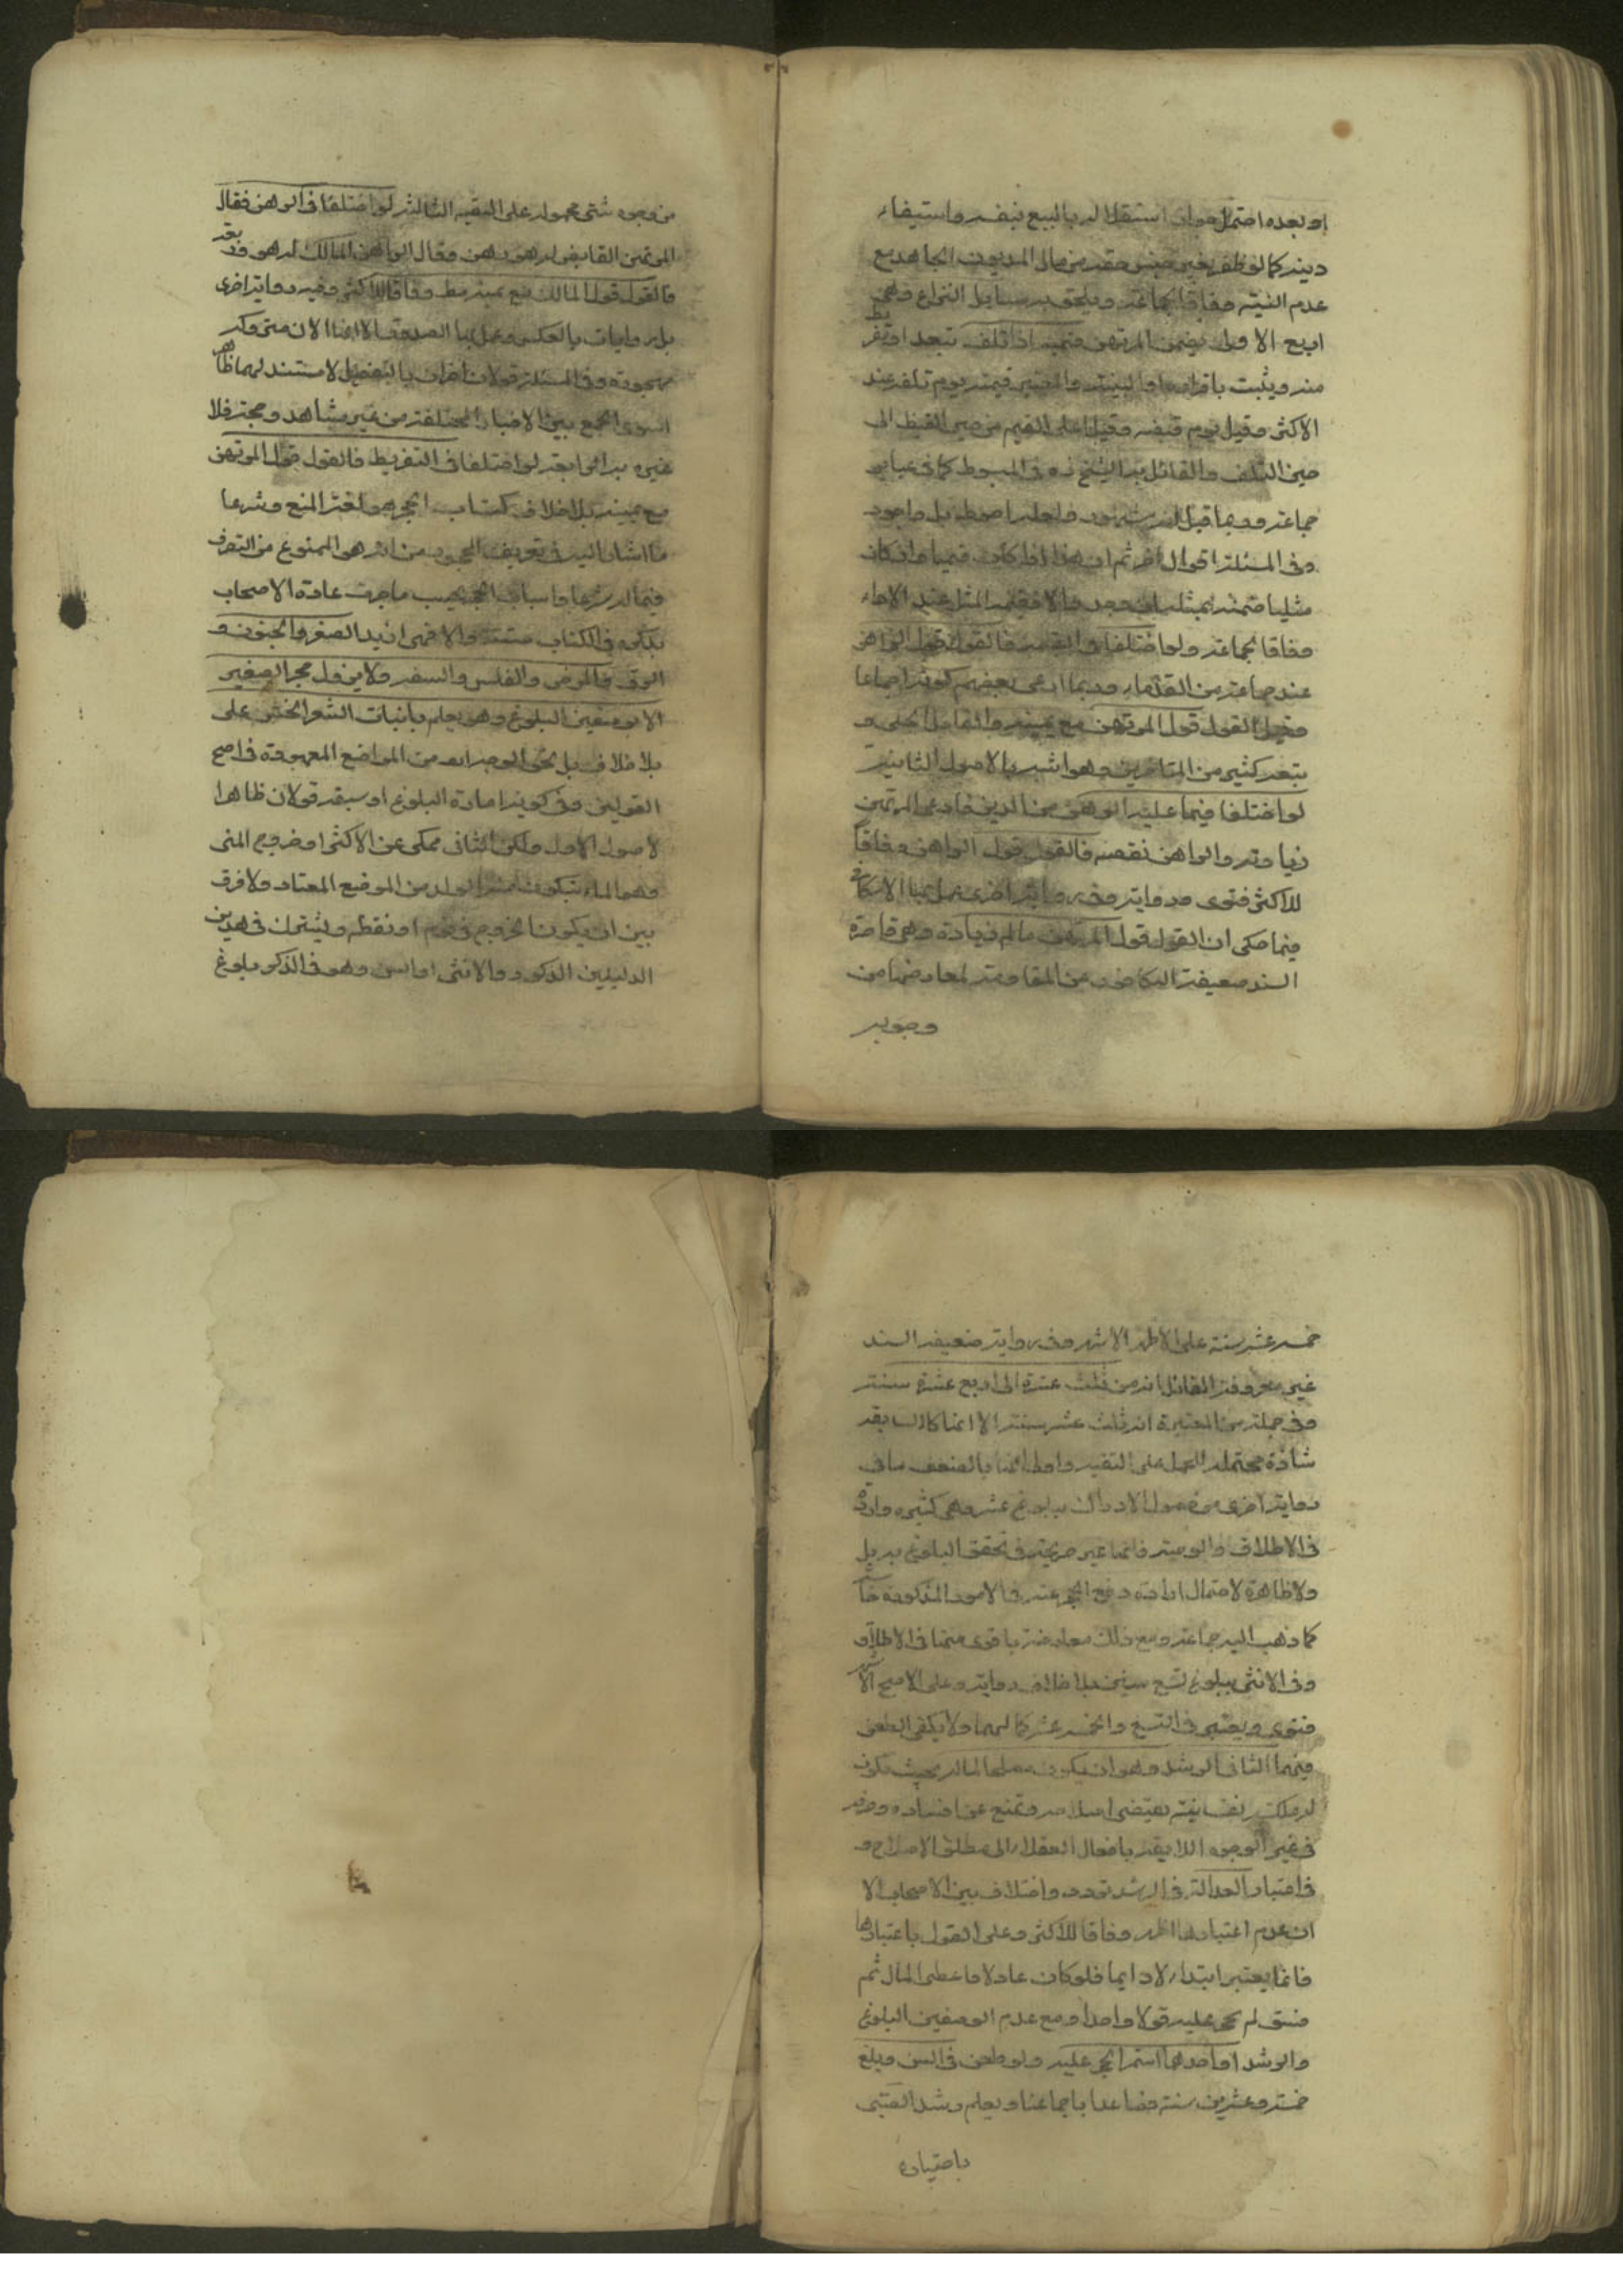 او بعده احتمل جواز استقلاله بالبيع بنفسه واستيفاء
دينه كما لو ظفر بغير جنس حقه من مال المديون الجاحد مع
عدم النية وفاقا لجماعة ويلحق به مسايل النزاع وهي
اربع الاولى يضمن المرتهن قيمته اذا تلف بتعد او تفريط
منه ويثبت باقراره او البينة والمعتبر قيمته يوم تلفه عند
الاكثر وقيل يوم قبضه وقيل اعلى القيم من حين القبض الى
حين التلف والقائل به الشيخ ره في المبسوط كما في عباير
جماعة وربما قيل انه مشهور ولعله احوط بل واجود
وفي المسئلة اقوال اخر ثم ان هذا اذا كان قيميا وان كان
مثليا ضمنه بمثله ان وجد والا فقيمة المثل عند الاداء
وفاقا لجماعة ولو اختلفا في القيمة فالقول قول الراهن
عند جماعة من القدماء وربما ادعى بعضهم كونه اجماعا
وقيل القول قول المرتهن مع يمينه والقائل الحلي و
تبعه كثير من المتاخرين وهو اشبه بالاصول الثانية
لو اختلفا فيما عليه الرهن من الدين فادعى المرتهن
زيادته والراهن نقصه فالقول قول الراهن وفاقا
للاكثر فتوى ورواية وفي رواية اخرى عمل بها الاسكافي
فيما حكى ان القول قول المرتهن ما لم زيادة وهي قاصرة
السند ضعيفة التكافؤ عن المقاومة لمعارضها من
وجوه
من وجوه شتى محمولة على التقية الثالثة لو اختلفا في الرهن فقال
المرتهن القابض له هو رهن وقال الراهن المالك له هو وديعة
فالقول قول المالك مع يمينه مط وفاقا للاكثر وفيه رواية اخرى
بل روايات بالعكس وعمل بها الصدوق الا انها الان متروكة
مهجورة وفي المسئلة قولان اخران بالتفصيل لا مستند لهما ظاهر
سوى الجمع بين الاخبار المختلفة من غير شاهد وحجة فلا
عبرة بهما الرابعة لو اختلفا في التفريط فالقول قول المرتهن
مع يمينه بلا خلاف كتاب الحجر هو لغة المنع وشرعا
ما اشار اليه في تعريف المحجور من انه هو الممنوع من التصرف
في ماله شرعا واسباب الحجر بحسب ما جرت عادة الاصحاب
بذكره في الكتاب ستة والا فهي ازيد الصغر والجنون و
الرق والمرض والفلس والسفه ولا يزول حجر الصغير
الا بوصفين البلوغ وهو يعلم بانبات الشعر الخشن على
بلا خلاف بل نحو الوجه انه من المواضع المعهودة في اصح
القولين وفي كونه امارة البلوغ او سبقه قولان ظاهرا
لاصول الاول ولكن الثاني محكى عن الاكثر او خروج المنى
وهو الماء يتكون منه الولد من الموضع المعتاد ولا فرق
بين ان يكون الخروج في نوم او يقظة ويشترك في هذين
الدليلين الذكور والانثى او السن وهو في الذكر بلوغ
خمسة عشر سنة على الاظهر الاشهر وفي رواية ضعيفة السند
غير معروفة القائل انه من ثلث عشرة الى اربع عشرة سنة
وفي جملة من المعتبرة انه ثلث عشر سنة الا انها كالسابقة
شاذة محتملة للحمل على التقية واولى منها بالضعف ما في
رواية اخرى من حصول الادراك ببلوغ عشر وهي كثيرة واردة
في الاطلاق والوصية فانها غير صريحة في تحقق البلوغ به بل
ولا ظاهرة لاحتمال ارادة رفع الحجر عنه في الامور المذكورة خاصة
كما ذهب اليه جماعة ومع ذلك معارضة باقوى منها في الاطلاق
وفي الانثى ببلوغ تسع سنين بلا خلاف رواية وعلى الاصح الاشهر
فتوى ويعتبر في التسع والخمسة عشر كمالهما ولا يكفى الطعن
فيهما الثاني الرشد وهو ان يكون مصلحا لماله بحيث يكون
له ملكة نفسانية تقتضى اصلاحه وتمنع عن افساده وصرفه
في غير الوجوه اللايقة بافعال العقلاء الى مطلق الاصلاح و
في اعتبار العدالة في الرشد تردد واختلاف بين الاصحاب الا
ان عدم اعتبارها اظهر وفاقا للاكثر وعلى القول باعتبارها
فانما يعتبر ابتداء لا دايما فلو كان عادلا فاعطى المال ثم
فسق لم يحجر عليه قولا واحدا ومع عدم الوصفين البلوغ
والرشد او احدهما استمر الحجر عليه ولو طعن في السن وبلغ
خمسة وعشرين سنة فصاعدا باجماعنا ويعلم رشد الصبى
باختباره